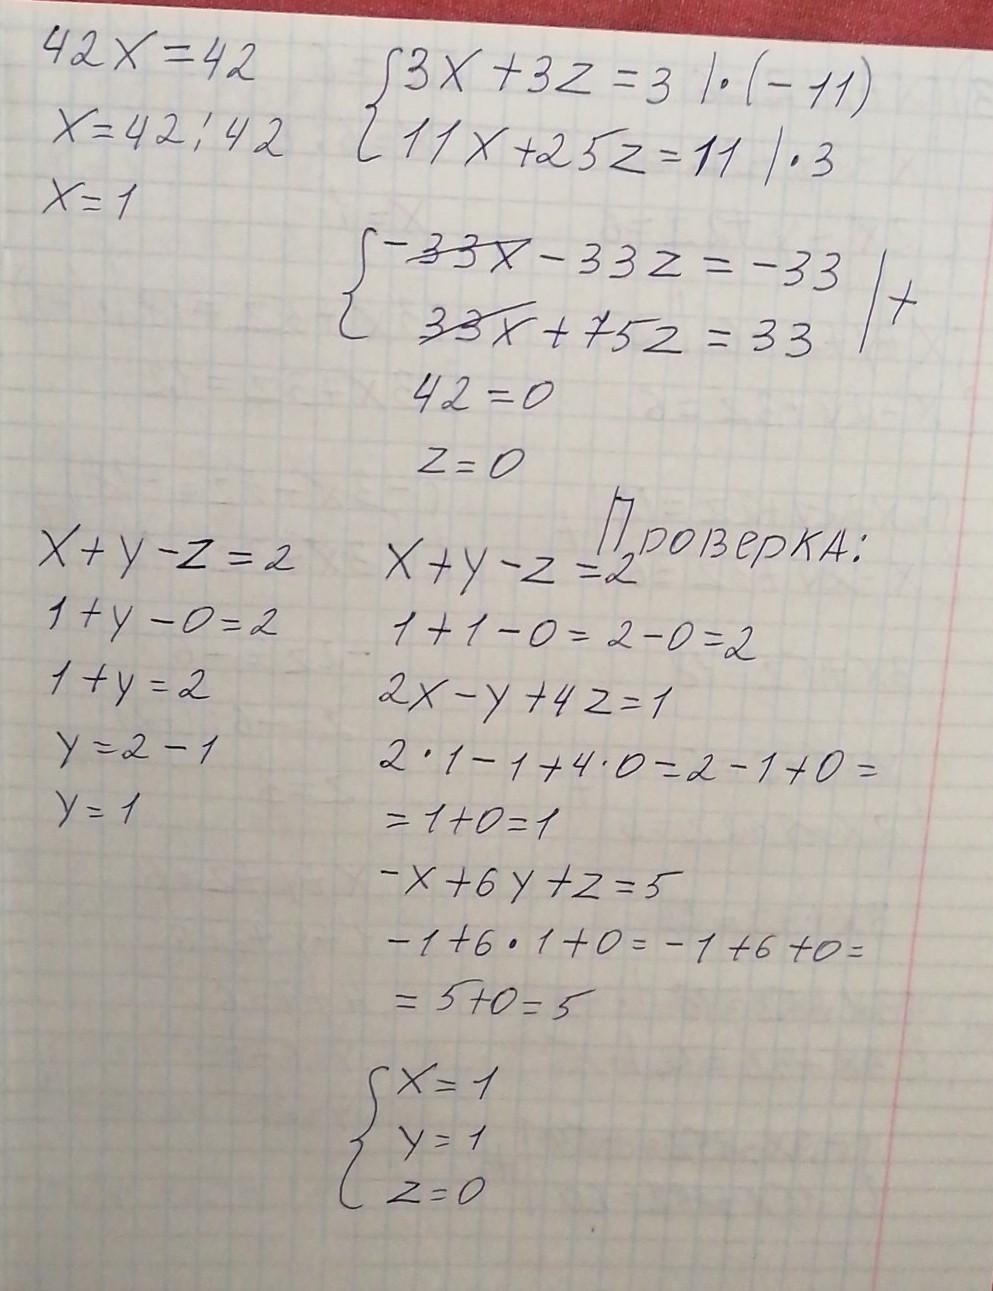 42x=42
x=42:42
x=1
{3x+3z=3 |·(-11)
11x+25z=11 |·3
{-33x-33z=-33 |+
33x+75z=33
42=0
z=0
x+y-z=2
1+y-0=2
1+y=2
y=2-1
y=1
Проверка:
x+y-z=2
1+1-0=2-0=2
2x-y+4z=1
2·1-1+4·0=2-1+0=
=1+0=1
-x+6y+z=5
-1+6·1+0=-1+6+0=
=5+0=5
{x=1
y=1
z=0